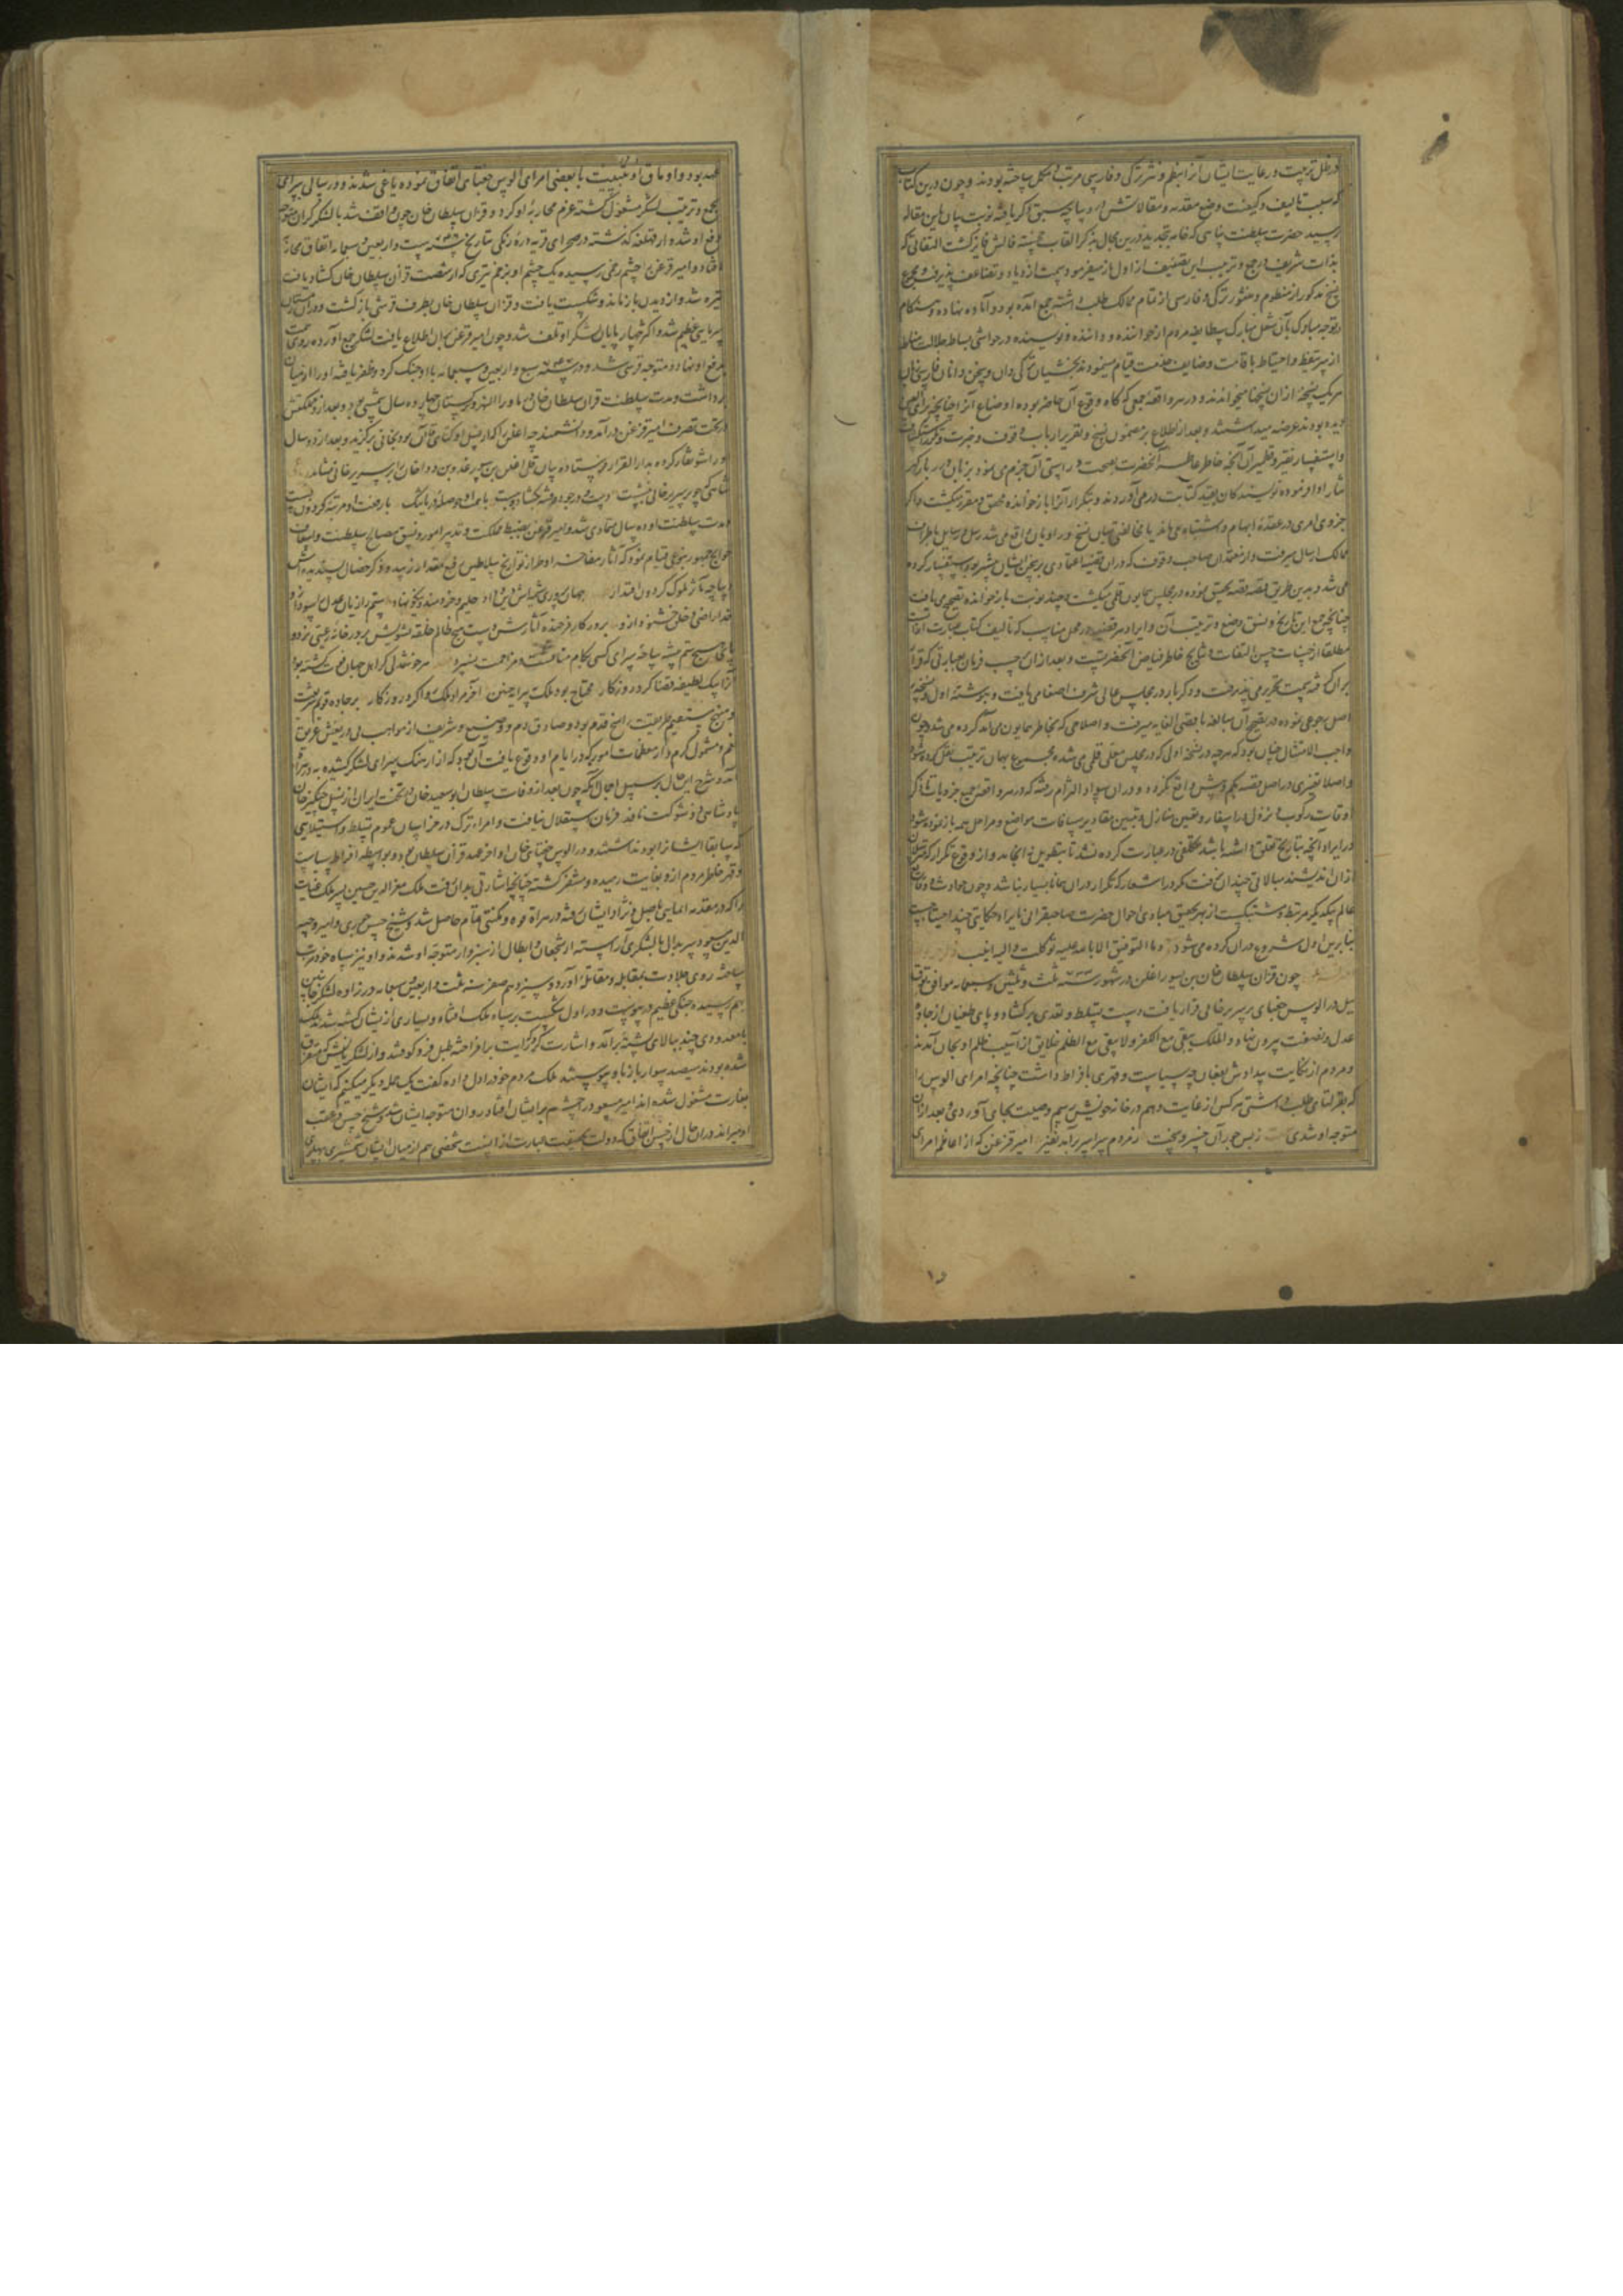 در ظل تربیت و رعایت ایشان آنرا بنظم و نثر ترکی و فارسی مرتب و مکمل ساخته بودند و چون درین کتاب
که سبب تالیف و کیفیت وضع مقدمه و مقالاتش در دیباچه سبق ذکر یافته نوبت بیان باین مقاله
رسید حضرت سلطنت پناهی که خامه بتجدید درین محال بذکر القاب همایون فایز گشت التفاتی که
بذات شریف در جمع و ترتیب این تصنیف از اول باز میفرمود سمت ازدیاد و تضاعف پذیرفت و مجموع
نسخ مذکور از منظوم و منثور ترکی و فارسی از تمام ممالک طلب داشته جمع آمده بود و آماده نهاده و هنگام
توجه مبارک بآن شغل بهارک سه طایفه مردم از خواننده و داننده و نویسنده در حواشی بساط جلالت مناط
از سر تیقظ و احتیاط باقامت وظایف خدمت قیام مینمودند بخشیان ترکی دان و سخن دانان فارسی خوان
هر یک نسخهٔ از ان نسخها میخواندند و در هر واقعه جمعی که گاه وقوع آن حاضر بوده اوضاع آنرا چنانچه برای العین
دیده بودند عرضه میداشتند و بعد از اطلاع بر مضمون نسخ و تقریر ارباب وقوف و خبرت
و استفسار نقیر و قطمیر آن آنچه خاطر عاطر آنحضرت بصحت و راستی آن جزم می نمود بزبان درر بار گهر
نثار ادا فرموده نویسندگان بقید کتابت در می آوردند و بتکرار آنرا باز خوانده محقق و مقرر میگشت و اگر
جزوی امری در عقدهٔ ابهام و اشتباه می ماند یا مخالفتی میان نسخ و راویان واقع می شد رسل و رسایل باطراف
ممالک ارسال میرفت و از معتمدان صاحب وقوف که در ان قضیه اعتمادی بر سخن ایشان بیشتر بود استفسار کرده
می شد و بدین طریق قصه قصه تحقیق نموده در مجلس همایون قلمی میگشت و چند نوبت باز خوانده تصحیح می یافت
چنانچه جمع این تاریخ و نسق وضع و ترتیب آن و ایراد هر قضیه در محل مناسب که تالیف کتاب عبارت از آنست
مطلقا از حسنات حسن التفات و نتایج خاطر فیاض آنحضرتست و بعد از ان حسب فرمان بعبارتی که قرار
بران گرفته سمت تحریر می پذیرفت و دگر بار در مجلس عالی شرف اصغا می یافت و نوشته اول و نسخهٔ
اصل رجوع نموده در تصحیح آن مبالغه باقصی الغایه میرفت و اصلاحی که بخاطر همایون می آمد کرده می شد و چون
واجب الامتثال چنان بود که هر چه در نسخه اول که در مجلس معلی قلمی می شده مجموع بهمان ترتیب نقل کرده شود
و اصلا تغییری در اصل قصه بکم و بیش واقع نگردد و دران سواد التزام رفته که در هر واقعه جمیع جزویات تا ذکر
اوقات رکوب و نزول در اسفار و تعیین منازل و تبیین مقادیر مسافات مواضع و مراحل همه باز نموده شود
در ایراد آنچه بتاریخ تعلق داشته باشد تکلفی در عبارت کرده نشد تا بتطویل نه انجامد و از وقوع تکرار
ازان اندیشند مبالاتی چندان نرفت مگر در اشعار که تکرار دران همانا بسیار نباشد و چون حوادث و وقایع
عالم بیکدیگر مرتبط و مشتبکست از بهر تحقیق مبادی احوال حضرت صاحبقرانی بایراد حکایتی چند احتیاجست
بنابرین اول شروع دران کرده می شود و ما التوفیق الا بالله علیه توکلت و الیه انیب
چون قزان سلطان خان بن یسور اغلن در شهور سنه ۷۳۳ ثلث و ثلثین و سبعمایه موافق
ییل در الوس جغتای بر سریر خانی قرار یافت دست تسلط و تعدی بر گشاد و پای طغیان از جادهٔ
عدل و نصفت بیرون نهاد و الملک یبقی مع الکفر و لا یبقی مع الظلم خلایق از آسیب ظلم او بجان آمدند
و مردم از نکایت بیدادش بفغان چه سیاست و قهری بافراط داشت چنانچه امرای الوس را
که بقرلتای طلب داشتی هر کس از غایت وهم در خانه خویش رسم وصیت بجای آوردی و بعد از ان
متوجه او شدی ز بس جور آن خسرو بخت ز مردم سراسر برآمد نفیر امیر قزغن که از اعاظم امرای
عهد بود و اوماق او تبییت با بعضی امرای الوس جغتای اتفاق نموده یاغی شدند و در سالی سرای
بجمع و ترتیب لشکر مشغول گشته عزم محاربهٔ او کرد و قزان سلطان خان چون واقف شد با لشکر گران متوجه
دفع او شده از قهلغه گذشته در صحرای قریه درهٔ زنگی بتاریخ ۷۴۶ سنه ست و اربعین و سبعمایه اتفاق محاربه
افتاد و امیر قزغن را چشم زخمی رسیده یک چشم او بزخم تیری که از شصت قزان سلطان خان گشاد یافت
تیره شد و از دیدن باز ماند و شکست یافت و قزان سلطان خان بطرف قرشی باز گشت و دران زمستان
سرمایی عظیم شد و اکثر چهارپایان لشکر او تلف شد و چون امیر قزغن بران اطلاع یافت لشکر جمع آورده روی همت
بدفع او نهاد و متوجه قرشی شد و در سنه ۷۴۷ سبع و اربعین و سبعمایه با او جنگ کرد و ظفر یافته او را از میان
برداشت و مدت سلطنت قزان سلطان خان در ماوراء النهر و ترکستان چهارده سال شمسی بود و بعد از و مملکتش
در تحت تصرف امیر قزغن درآمد و دانشمندچه اغلن را که از نسل اوکتای قاآن بود بخانی برگزید و بعد از دو سال
او را شونقار کرده بدار القرار فرستاد و بیان قلی اغلن بن سورغدو بن دوا خان را بر سریر خانی نشاند
شاهی چو بر سریر خانی بنشست دست و در جود و عدل بگشاد و ببست
مدت سلطنت او ده سال متمادی شد و امیر قزغن بضبط مملکت و تدبیر امور و نسق مصالح سلطنت و اسعاف
حوایج جمهور بنوعی قیام نمود که آثار مفاخرت او طراز تواریخ سلاطین رفیع مقدار زیبد و ذکر خصال پسندیده اش
دیباچه مآثر ملوک گردون اقتدار جهان پروری شهریاش دین و داد حلیم و خردمند و نیکو نهاد
خدا راضی و خلق خشنود ازو بروزگار فرخنده آثارش دست هیچ ظالم حلقه تشویش بر در خانهٔ رعیتی نزد و
پای هیچ ستم پیشه ساحت سرای کسی بکام منافست و مزاحمت نسپرد
آنرا بیک لطیفه قضا کرد روزگار محتاج بود ملک به پیرایهٔ چنین آخر مراد ملک روا کرد روزگار بر جادهٔ قویم شریعت
و منهج مستقیم طریقت راسخ قدم بود و صادق دم و وضیع و شریف از مواهب بی دریغش غریق
نعم و مشمول کرم و از معظمات امور که در ایام او وقوع یافت آن بود که از ارهنگ سرای لشکر کشیده به هراة
آمد و شرح این حال بر سبیل اجمال آنکه چون بعد از وفات سلطان ابو سعید خان در تخت ایران از نسل چنگیز خان
پادشاهی ذو شوکت نافذ فرمان استقلال نیافت و امراء ترک در خراسان عموم تسلط و استیلایی
که سابقا ایشانرا بود نداشتند و در الوس جغتای خان اواخر عهد قزان سلطان بود و بواسطه افراط سیاست
و قهر خاطر مردم از و بغایت رمیده و متنفر گشته چنانچه اشارتی بدان رفت ملک معز الدین حسین پسر ملک غیاث
را که در مقدمه ایمایی باصل و نژاد ایشان رفته در هراة قوه و مکنتی تمام حاصل شد و شیخ حسن جوری و امیر وجیه
الدین مسعود سربدال با لشکری آراسته از شجعان و ابطال از سبزوار متوجه او شدند و او نیز سپاه خود مرتب
ساخته روی جلادت بمقابله و مقاتله آورد و سیزدهم صفر سنه ثلث و اربعین و سبعمایه در زاوه لشکر جانبین
بهم رسیده جنگی عظیم در پیوست و در اول شکست بر سپاه ملک افتاد و بسیاری از یشان کشته شدند ملک
با معدودی چند ببالای پشتهٔ برآمد و اشارت کرد که رایت برافراخته طبل فرو کوفتند و از لشکریانش که متفرق
شده بودند سیصد سوار باز باو پیوستند ملک مردم خود را دل داده گفت یک حمله دیگر میکنیم که ایشان
بغارت مشغول شده اند امیر مسعود را چشم بر ایشان افتاد روان متوجه ایشان شد و شیخ حسن در عقب
او میراند دران حال از حسن اتفاق که دولت بحقیقت عبارت از انست شخصی هم از میان ایشان شمشیری بر پهلوی